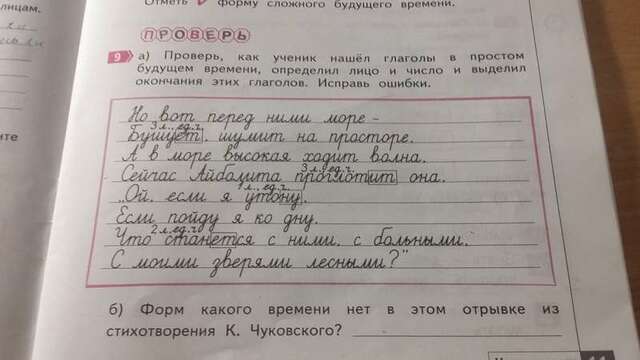 лицам.
Отметь ✓ форму сложного будущего времени.
ПРОВЕРЬ
9 а) Проверь, как ученик нашёл глаголы в простом
будущем времени, определил лицо и число и выделил
окончания этих глаголов. Исправь ошибки.
Но вот перед ними море –
3 л., ед. ч.
Бушует, шумит на просторе.
А в море высокая ходит волна.
3 л., ед. ч.
Сейчас Айболита проглотит она.
1 л., ед. ч.
„Ой, если я утону,
Если пойду я ко дну,
2 л. ед. ч.
Что станется с ними, с больными,
С моими зверями лесными?"
ите
б) Форм какого времени нет в этом отрывке из
стихотворения К. Чуковского?